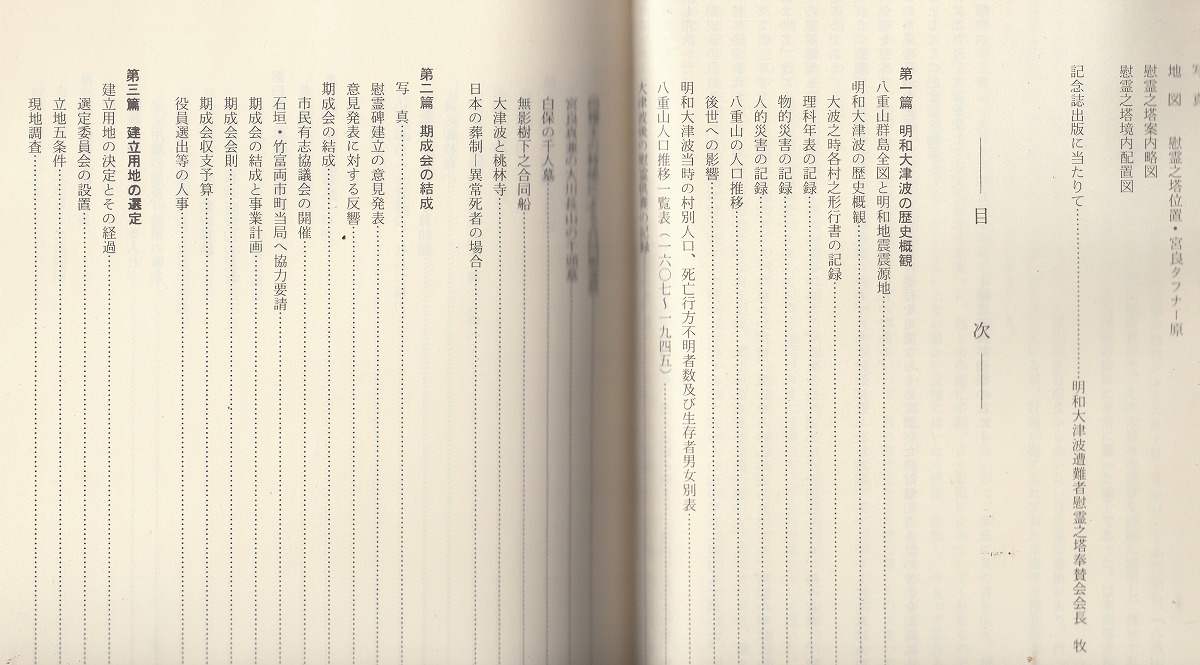 写 真
地 図 慰霊之塔位置・宮良タフナー原
慰霊之塔案内略図
慰霊之塔境内配置図
記念誌出版に当たりて……………………明和大津波遭難者慰霊之塔奉賛会会長 牧
― 目 次 ―
第一篇 明和大津波の歴史概観
八重山群島全図と明和地震震源地
明和大津波の歴史概観
大波之時各村之形行書の記録
理科年表の記録
物的災害の記録
人的災害の記録
八重山の人口推移
後世への影響
明和大津波当時の村別人口、死亡行方不明者数及び生存者男女別表
八重山人口推移一覧表(一六〇七〜一九四五)
大津波後の慰霊供養の記録
宮良
大川長山の千頭墓
白保の千人墓
無影樹下之合同船
大津波と桃林寺
日本の葬制―異常死者の場合
第二篇 期成会の結成
写 真
慰霊碑建立の意見発表
意見発表に対する反響
期成会の結成
市民有志協議会の開催
石垣・竹富両市町当局へ協力要請
期成会の結成と事業計画
期成会会則
期成会収支予算
役員選出等の人事
第三篇 建立用地の選定
建立用地の決定とその経過
選定委員会の設置
立地五条件
現地調査